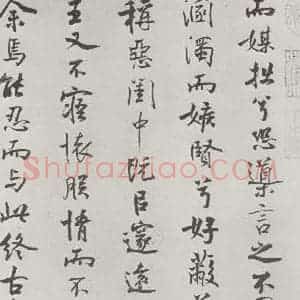 而媒拙兮恐導言之不
溷濁而嫉賢兮好蔽
稱惡閨中既㠯邃遠
王又不寤懷朕情而不
余焉能忍而与此終古